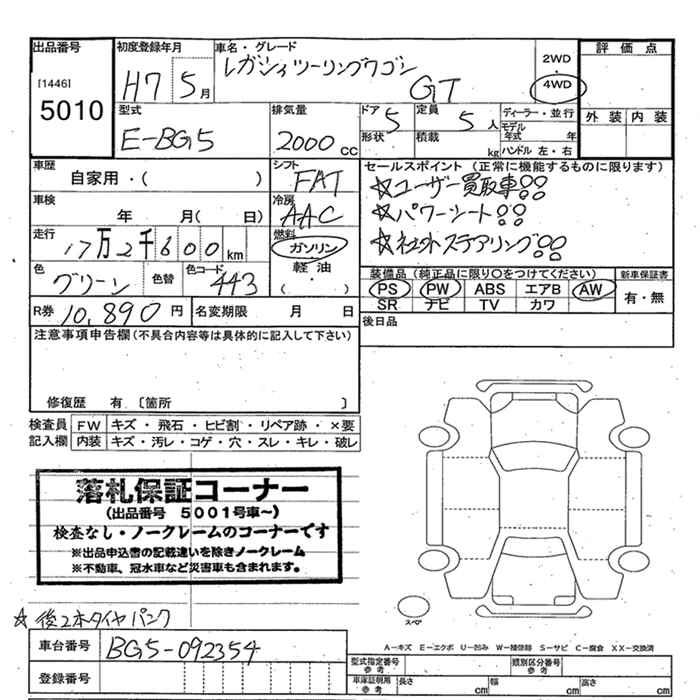 出品番号 初度登録年月 車名・グレード 評価点
[1446] 5010
H7 5月 レガシィツーリングワゴン GT 2WD 4WD
型式 排気量 ドア 5 定員 5人 ディーラー・並行 外装 内装
E-BG5 2000cc 形状 積載 kg モデル年式 年
ハンドル 左・右
車歴 自家用・( ) シフト FAT セールスポイント (正常に機能するものに限ります)
☆ユーザー買取車!!
車検 年 月(日) 冷房 AAC ☆パワーシート!!
走行 17万2千600km 燃料 ガソリン ☆社外ステアリング!!
軽油・( )
色 グリーン 色替 色コード 443 装備品 (純正品に限り○をつけてください) 新車保証書
PS PW ABS エアB AW 有・無
SR ナビ TV カワ
R券 10,890円 名変期限 月 日 後日品
注意事項申告欄 (不具合内容等は具体的に記入して下さい)
修復歴 有 〔箇所 〕
検査員 FW キズ・飛石・ヒビ割・リペア跡・×要
記入欄 内装 キズ・汚レ・コゲ・穴・スレ・キレ・破レ
落札保証コーナー
(出品番号 5001号車〜)
検査なし・ノークレームのコーナーです
※出品申込書の記載違いを除きノークレーム
※不動車、冠水車など災害車も含まれます。
スペア
☆後2本タイヤパンク
A−キズ E−エクボ U−凹み W−補修跡 S−サビ C−腐食 XX−交換済
車台番号 BG5-092354 型式指定番号 参考 類別区分番号 参考
登録番号 車庫証明用 参考 長さ cm 幅 cm 高さ cm